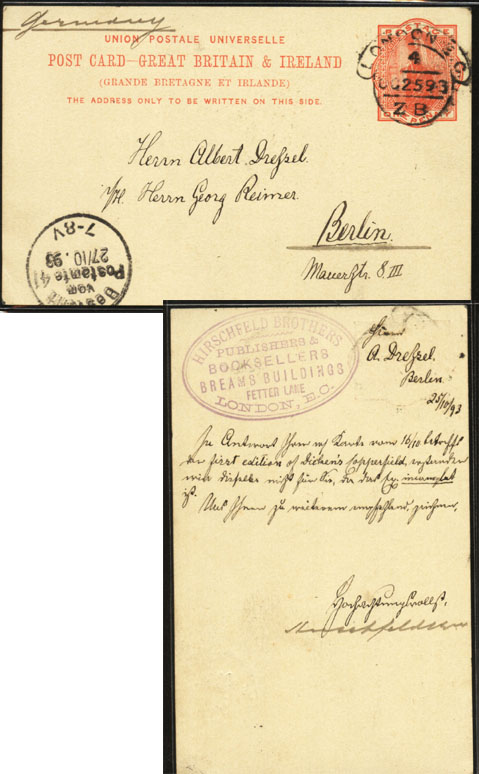 Germany
UNION POSTALE UNIVERSELLE
POST CARD–GREAT BRITAIN & IRELAND
(GRANDE BRETAGNE ET IRLANDE)
THE ADDRESS ONLY TO BE WRITTEN ON THIS SIDE.
POSTAGE
LONDON E.C.
4
OC 25 93
ZB
Herrn Albert Dressel.
p/A. Herrn Georg Reimer.
Berlin.
Mauerstr. 8. III
Bestellt
vom
Postamte 41
27/10.93
7-8V
HIRSCHFELD BROTHERS
PUBLISHERS &
BOOKSELLERS
BREAMS BUILDINGS
FETTER LANE
LONDON, E.C.
Herrn
A. Dressel.
Berlin.
25/10/93
In Antwort Ihrer Karte vom 16/10 betreffs
first edition of Dicken's Copperfield,
wir dieselbe nicht für Sie, da das Ex. incomplet
ist.
Uns Ihnen zu weiterem empfehlend, zeichnen,
Hochachtungsvollst.